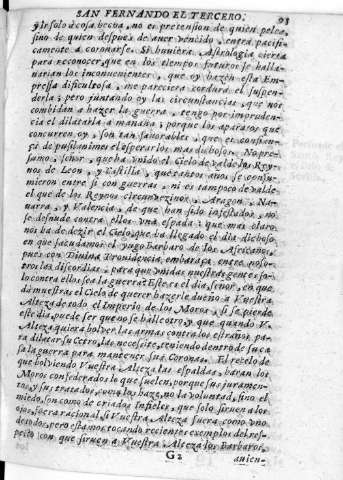 SAN FERNANDO EL TERCERO.
93
y ir solo à cosa hecha, no es pretension de quien pelea,
sino de quien despues de aver vencido, entra pacifi-
camente a coronarse. Si huviera Astrologia cierta
para reconocer, que en los tiempos futuros se halla-
rian los inconvenientes, que oy hazen esta Em-
pressa dificultosa, me pareciera cordura el suspen-
derla; pero juntando oy las circunstancias, que nos
combidan a hazer la guerra, tengo por impruden-
cia el dilatarla a mañana; porque los aparatos que
concurren oy, son tan favorables, que es confian-
ça de pusilanimes el esperarlos mas dichosos. No pre-
sumo, señor, que ha unido el Cielo de valde los Rey-
nos de Leon, y Castilla, que tantos años se consu-
mieron entre si con guerras, ni es tampoco de valde
el que de los Reynos circunvezinos, Aragon, Na-
varra, y Valencia, de que han sido infestados, no
se desnude contra ellos una espada: que mas claro
nos ha de dezir el Cielo, que ha llegado el dia dichoso,
en que sacudamos el yugo Barbaro de los Africanos,
pues con Divina Providencia, embaraça entre noso-
tros las discordias, para que unidas nuestras gentes so-
lo contra ellos sea la guerra? Este es el dia, señor, en que
dà muestras el Cielo de querer hazerle dueño a Vuestra
Alteza de todo el Imperio de los Moros, si se pierde
este dia, puede ser que no se halle otro, y que quando V.
Alteza quiera bolver las armas contra los estraños pa-
ra dilatar su Cetro, las necesite, teniendo dentro de su ca-
sa la guerra para mantener sus Coronas. El rezelo de
que bolviendo Vuestra Alteza las espaldas, haran los
Moros confederados lo que suelen, porque sus juramen-
tos, y sus tratados, como los haze, no la voluntad, sino el
miedo, son como de criados Infieles, que solo sirven a los
ojos, fuera racional, si Vuestra Alteza fuera como
todos, pero estamos tocando recientes exemplos del res-
peto con que sirven a Vuestra Alteza los Barbaros,
G 2
avien-